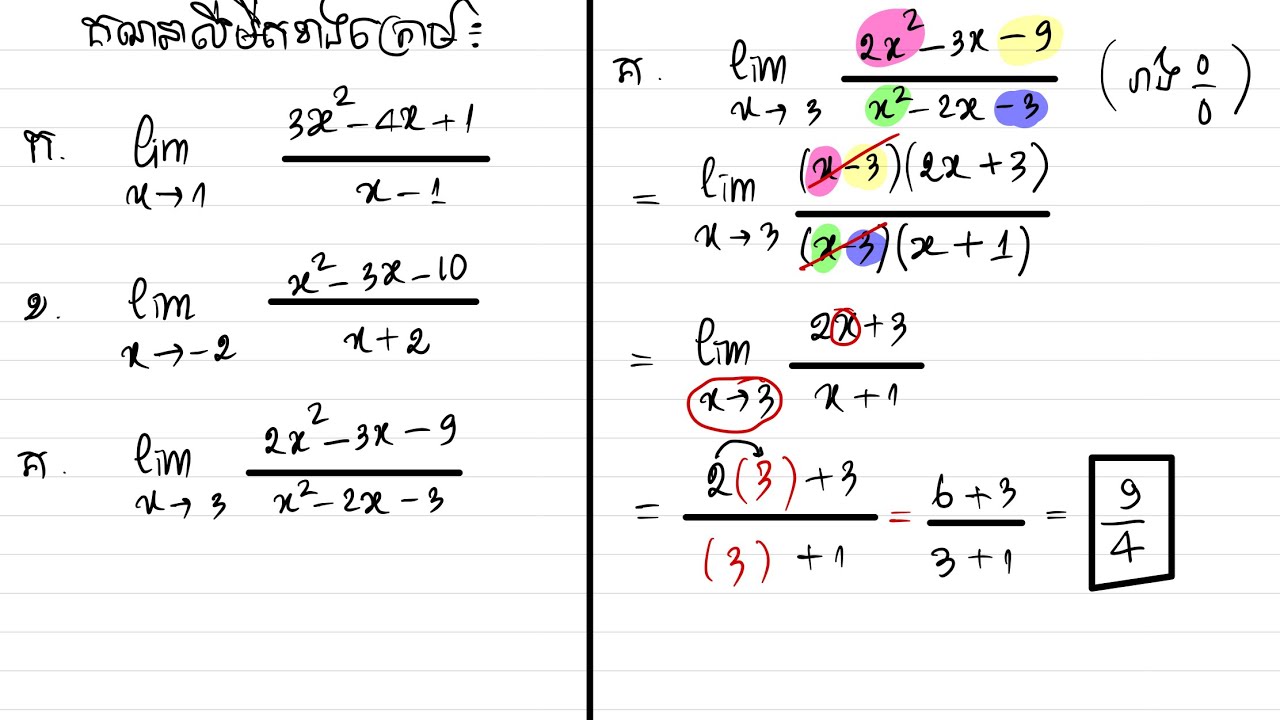 គណនាលីមីតខាងក្រោម៖
ក. lim x→1 (3x² - 4x + 1)/(x - 1)
ខ. lim x→-2 (x² - 3x - 10)/(x + 2)
គ. lim x→3 (2x² - 3x - 9)/(x² - 2x - 3)
គ. lim x→3 (2x² - 3x - 9)/(x² - 2x - 3) (រាង 0/0)
= lim x→3 ((x - 3)(2x + 3))/((x - 3)(x + 1))
= lim x→3 (2x + 3)/(x + 1)
= (2(3) + 3)/((3) + 1) = (6 + 3)/(3 + 1) = 9/4